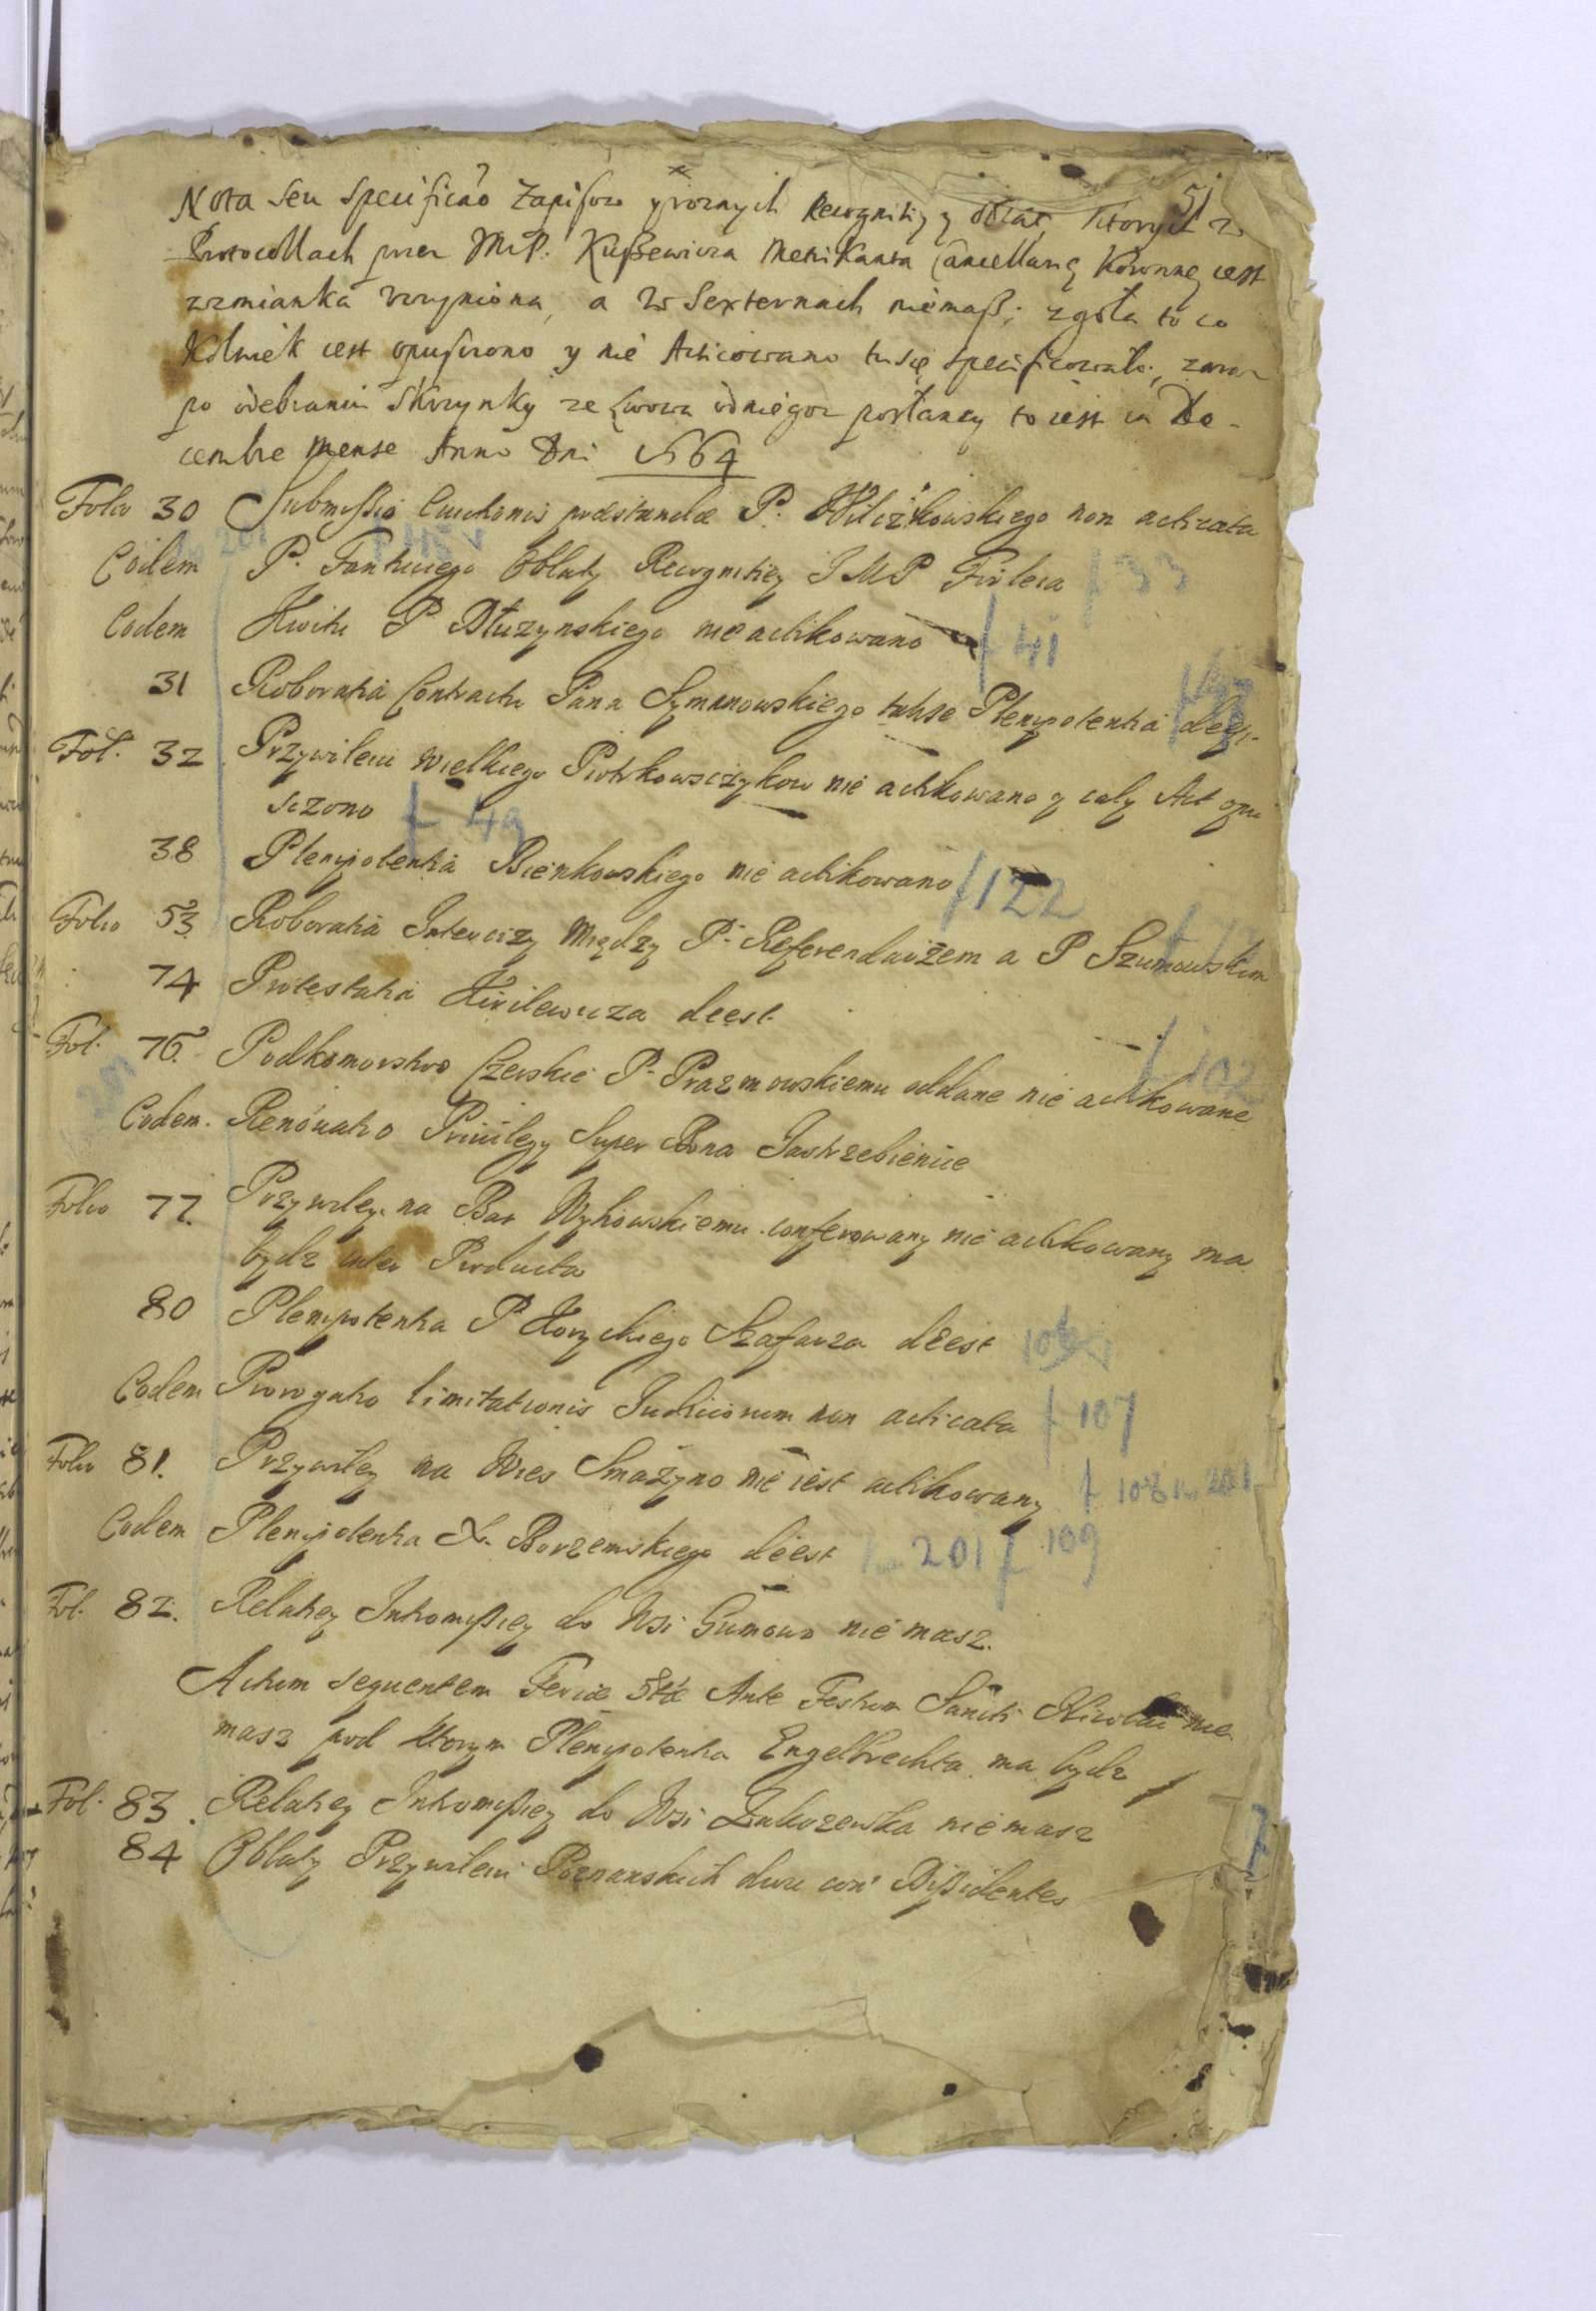 51
Nota seu specificao Zapisow y roznych Recognitiy y oblat, ktorych w
Protocollach przez JMP. Kußewicza Metrikanta Cancellarię Koronney iest
wzmianka vczyniona, a w Sexternach niemaß; zgoła to co
kolwiek iest opusczono y nie Acticowano tu się specificowało, zaraz
po odebraniu Skrzynky ze Lwowa od niegoz posłaney to iest in De-
cembre mense Anno Dni 1664
Folio 30 Submissio Evictionis praestandae P. Wilczkowskiego non acticata
Eodem P. Fantiniego Oblaty Recognitiey JMP Firleia f 33
Eodem Kwitu P Dłuzynskiego nie actikowano f 41
31 Roboratia Contractu Pana Szymanowskiego takze Plenipotentia deest
Fol. 32 Przywileiu wielkiego Piotrkowsczykow nie actikowano y caly Act opu
sczono f 49
38 Plenipotentia Bienkowskiego nie actikowano f 122
Folio 53. Roboratia Intercizy Między P. Referendarżem a P Szumowskim
74 Protestatia Kirilewicza deest.
Fol. 76. Podkomorstwo Czerskie P. Prazmowskiemu oddane nie actikowane f 102
Eodem. Renovatio Privilegy Super Bona Jastrzebienice
Folio 77. Przywiley na Bar Wyhowskiemu conferowany nie actikowany ma
bydz inter Producta
80 Plenipotentia P Korzyckiego Szafarza deest
Eodem Prorogatio limitationis Judiciorum non acticata f 107
Folio 81. Przywiley na Wies Smażyno nie iest actikowany f 108 201
Eodem Plenipotentia X. Borzemskiego deest 201 f 109
Fol. 82. Relatiey Intromissiey do Wsi Gumowo nie masz.
Actum sequentem Feriae 5tae Ante Festum Sancti Nicolai nie
masz pod ktorym Plenipotentia Engelbrechta ma bydz
Fol. 83. Relatiey Intromissiey do Wsi Zakrzewka nie masz
84 Oblaty Przywileiu Poznanskich dwu con Dißidentes